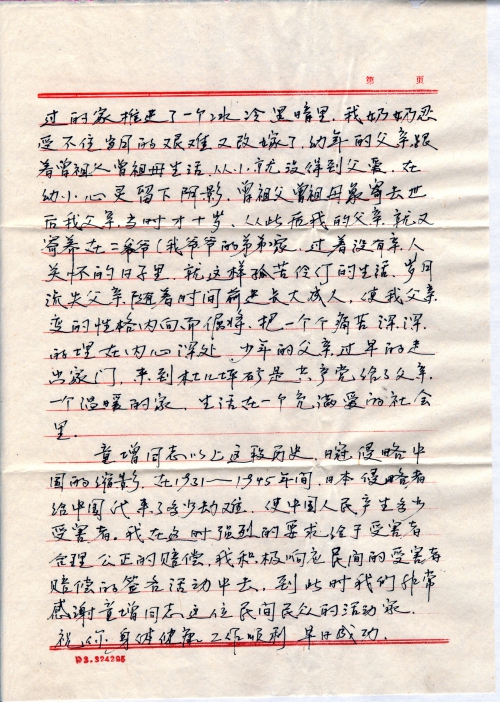 第 页
过的家推进了一个冰冷黑暗里，我奶奶忍
受不住岁月的艰难又改嫁了，幼年的父亲跟
着曾祖父曾祖母生活从小就没得到父爱，在
幼小心灵留下阴影，曾祖父曾祖母相去世
后我父亲当时才十岁，从此后我的父亲就又
寄养在二爷爷（我爷爷的弟弟）家，过着没有亲人
关怀的日子里，就这样孤苦伶仃的生活，岁月
流失父亲随着时间荷走长大成人，使我父亲
变的性格内向而倔犟，把一个个痛苦深深
的埋在内心深处，少年的父亲过早的走
出家门，来到杜儿坪矿是共产党给了父亲
一个温暖的家，生活在一个充满爱的社会
里。
童增同志以上这段历史，日寇侵略中
国的缩影，在1931——1945年间，日本侵略者
给中国代来了多少劫难，使中国人民产生多少
受害者。我在这时强烈的要求给于受害者
合理公正的赔偿，我积极响应民间的受害者
赔偿的签名活动中去，到此时我们非常
感谢童增同志这位民间民众的活动家，
祝你身体健康 工作顺利 早日成功。
D3.324295